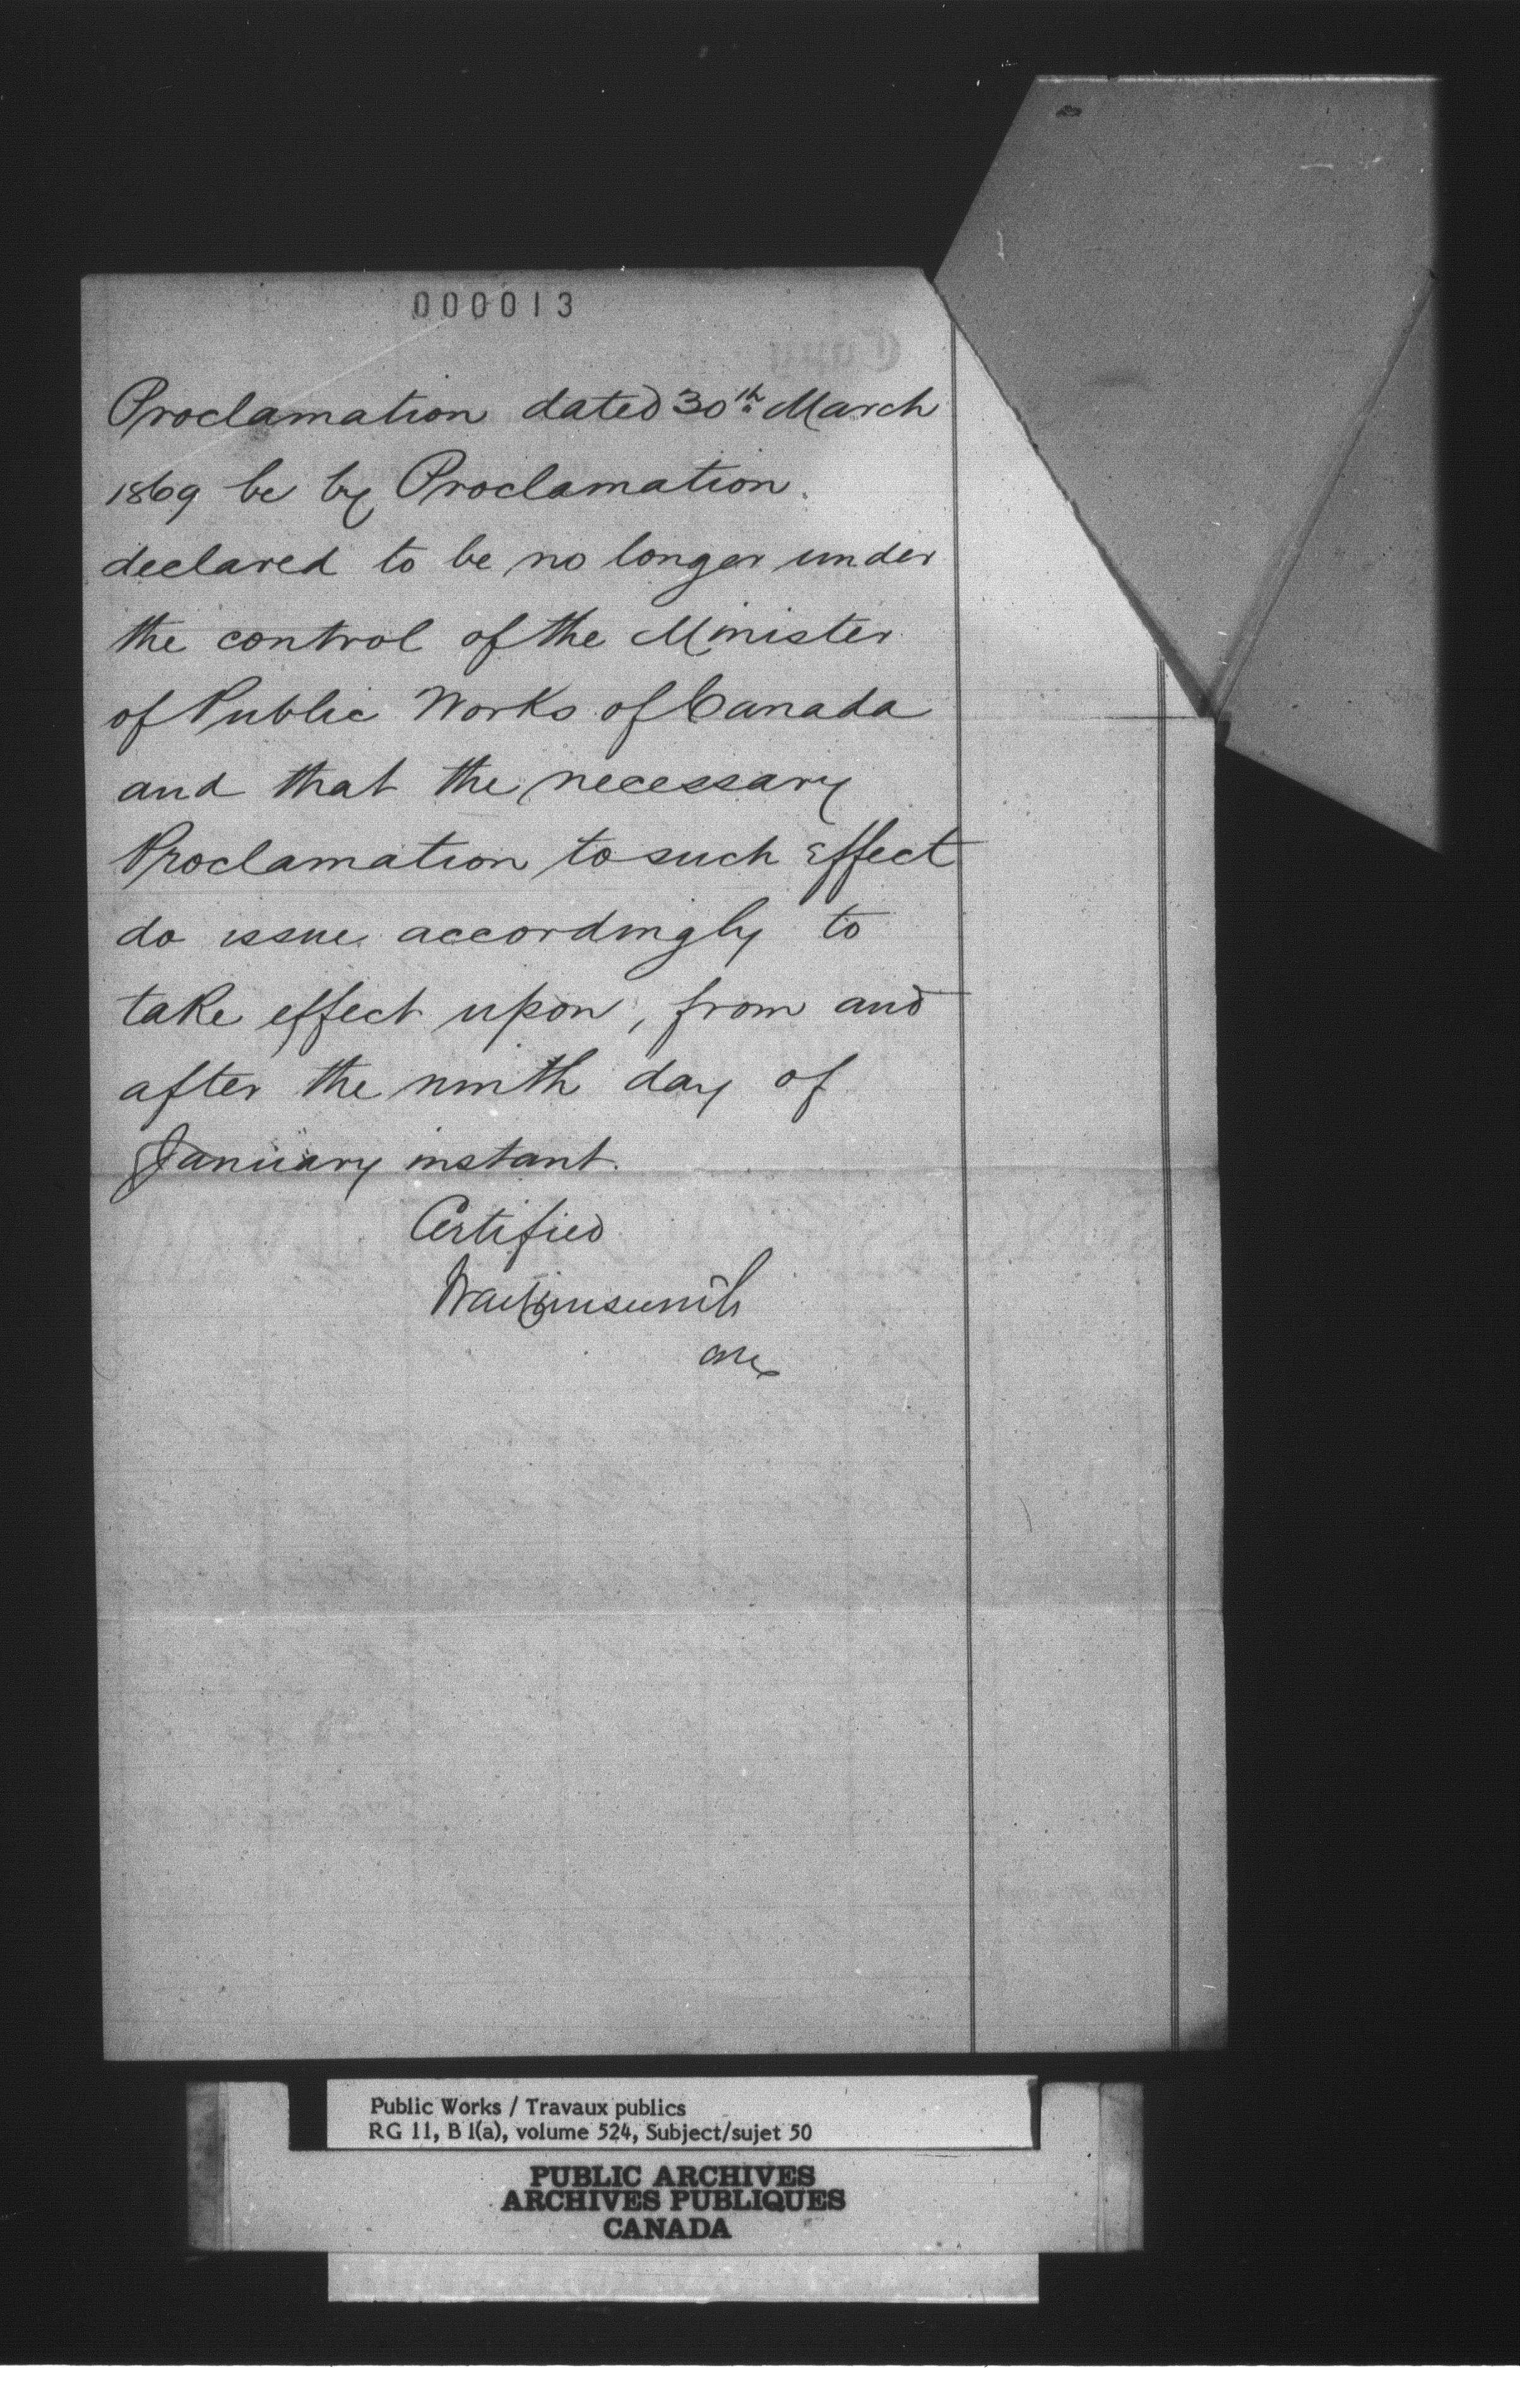 000013
Proclamation dated 30th March
1869 be by Proclamation
declared to be no longer under
the control of the Minister
of Public Works of Canada
and that the necessary
Proclamation to such Effect
do issue accordingly to
take effect upon, from and
after the ninth day of
January instant.
Certified
Public Works / Travaux publics
RG 11, B 1(a), volume 524, Subject/sujet 50
PUBLIC ARCHIVES
ARCHIVES PUBLIQUES
CANADA